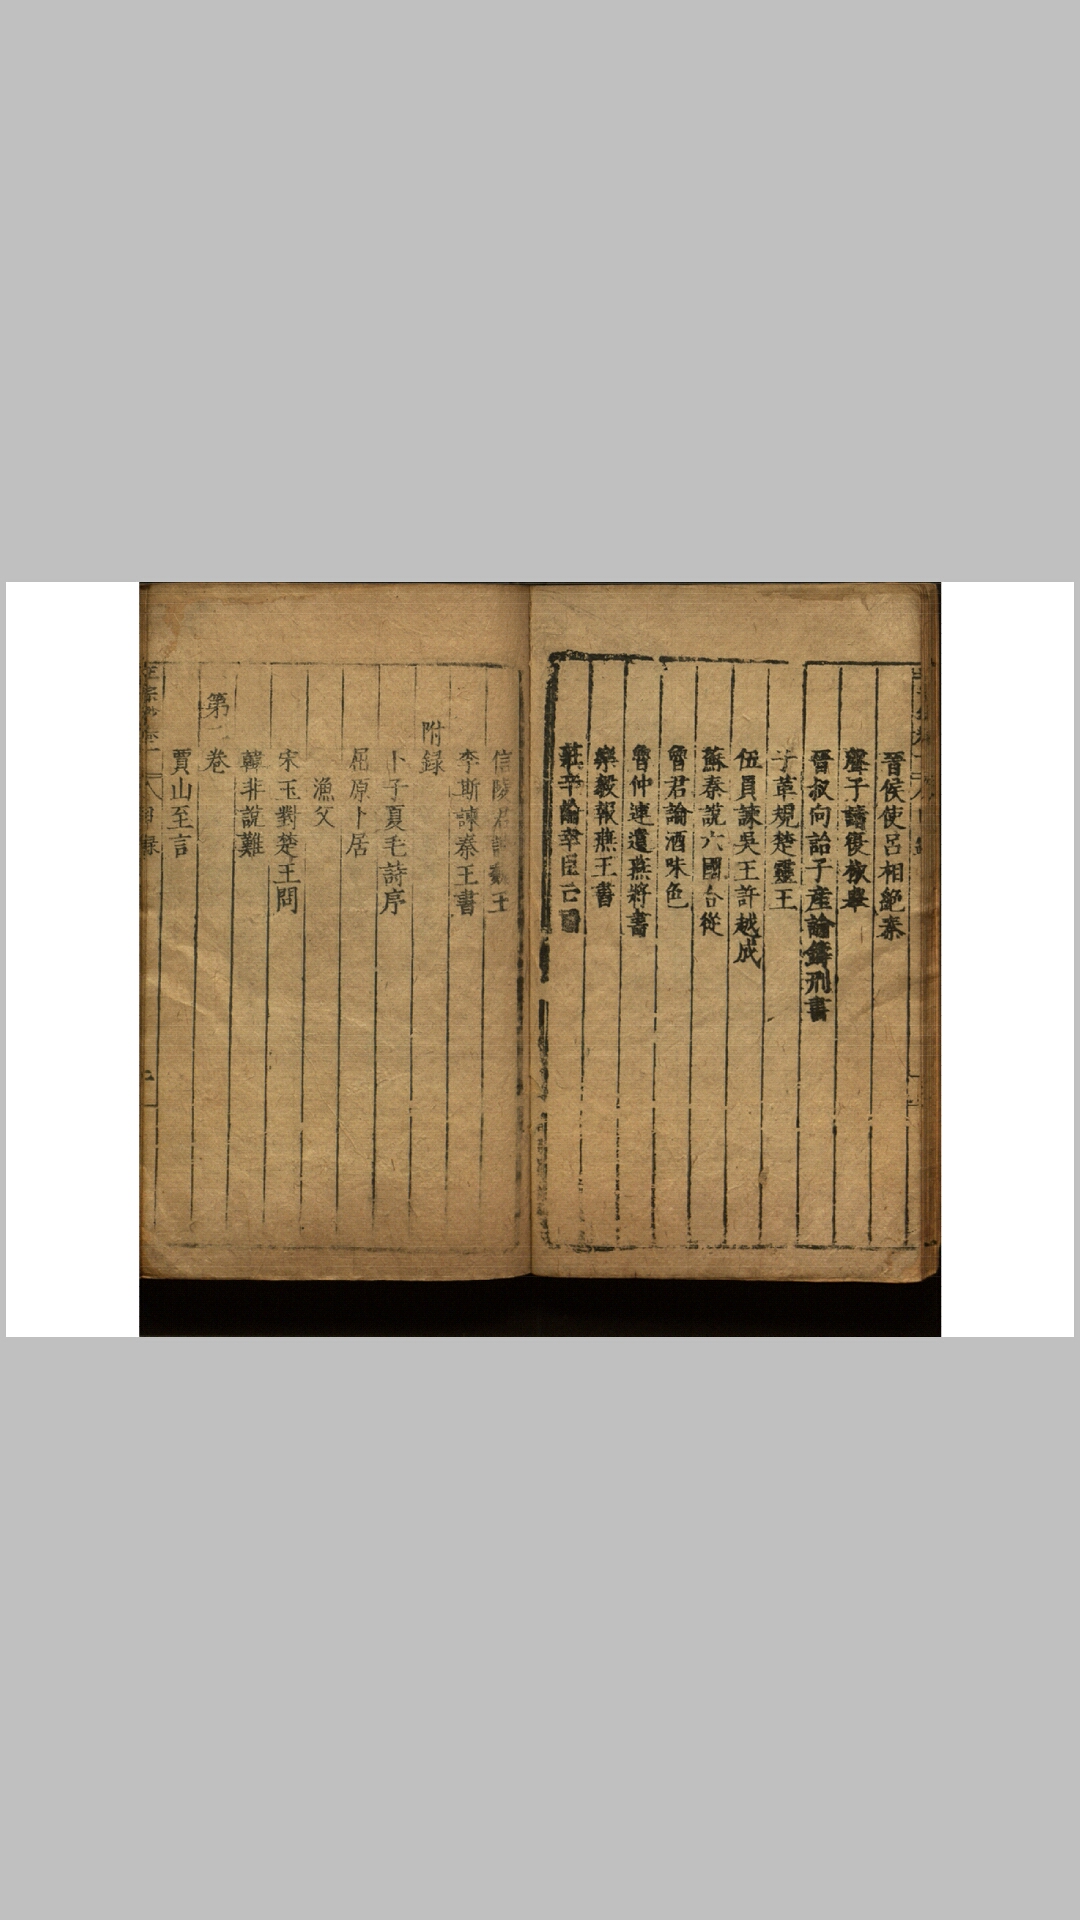 晉侯使呂相絕秦
聲子請復椒舉
晉叔向詒子產論鑄刑書
子革規楚靈王
伍員諫吳王許越成
蘇秦說六國合從
魯君論酒味色
魯仲連遺燕將書
樂毅報燕王書
莊辛論幸臣亡國
信陵君諫魏王
李斯諫秦王書
附録
卜子夏毛詩序
屈原卜居
漁父
宋玉對楚王問
韓非說難
第二卷
賈山至言
正宗鈔卷一 目録